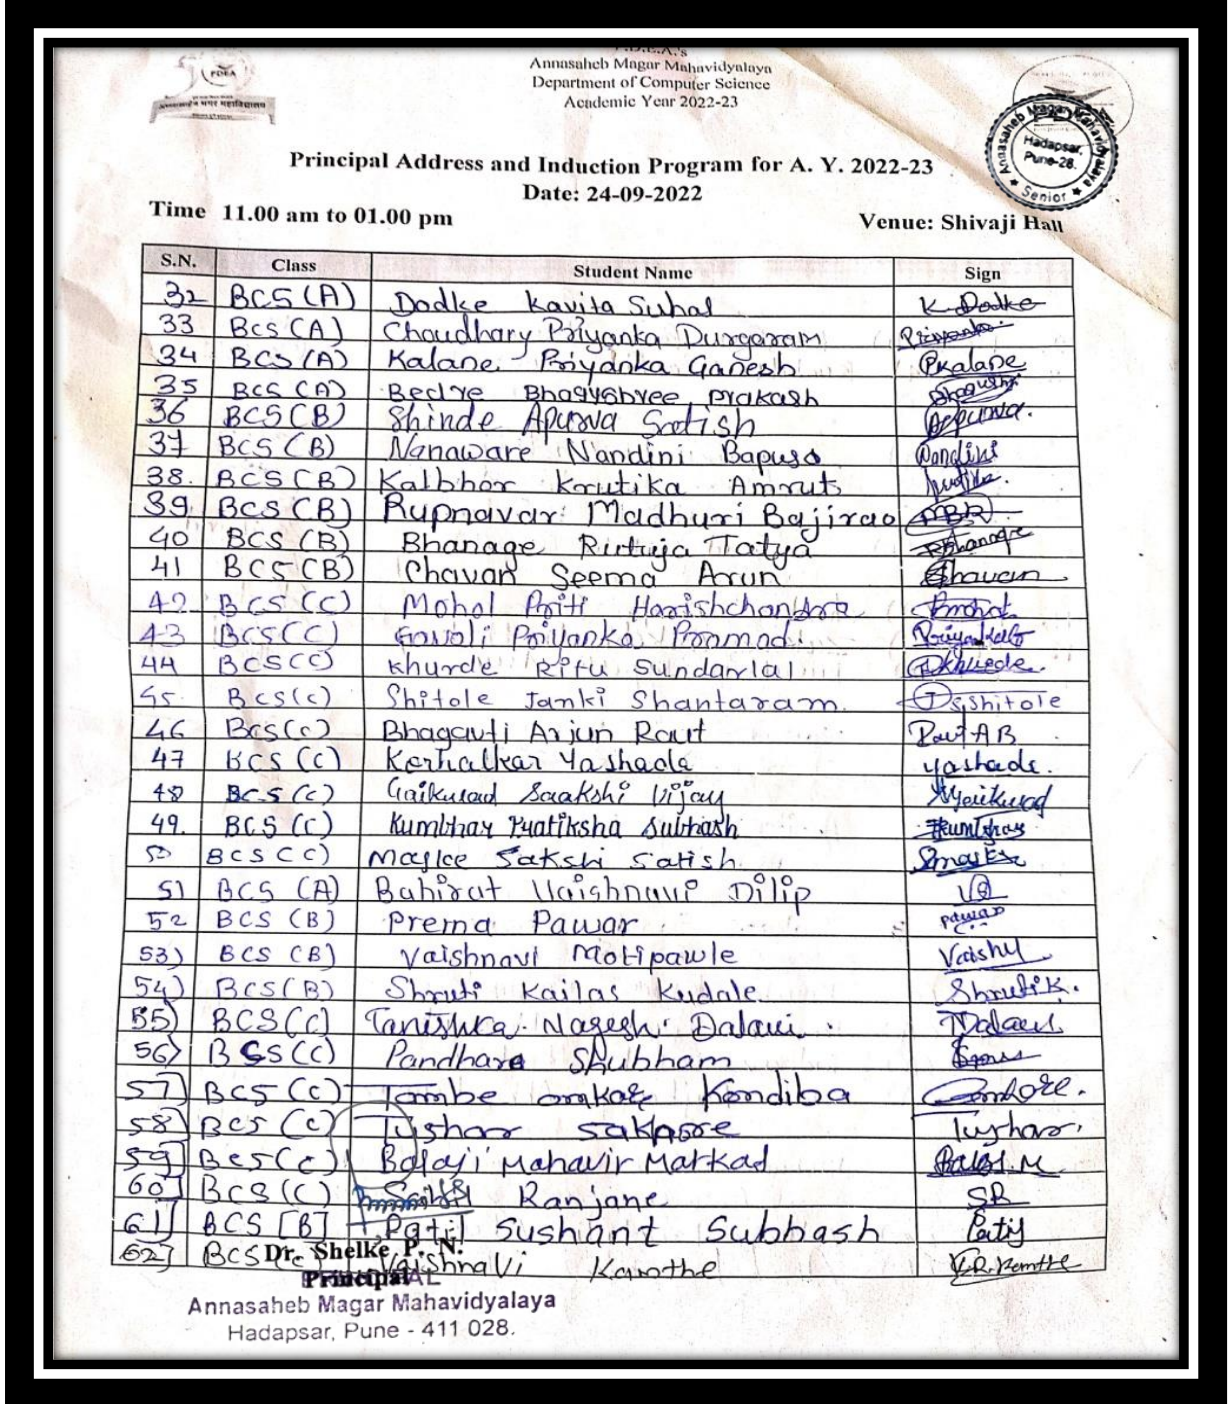 PDEA
अण्णासाहेब मगर महाविद्यालय
P.D.E.A.'s
Annasaheb Magar Mahavidyalaya
Department of Computer Science
Academic Year 2022-23
Annasaheb Magar Mahavidyalaya
Hadapsar,
Pune-28.
★ Senior ★
Principal Address and Induction Program for A. Y. 2022-23
Date: 24-09-2022
Time 11.00 am to 01.00 pm Venue: Shivaji Hall
S.N. Class Student Name Sign
32 BCS (A) Dodke Kavita Suhas K Dodke
33 Bcs (A) Choudhary Priyanka Durgaram Priyanka
34 BCS (A) Kalane Priyanka Ganesh Pkalane
35 BCS (A) Bedre Bhagyshree prakash
36 BCS(B) Shinde Apurva Satish Appurva.
37 BCS (B) Nanaware Nandini Bapuso Nandini
38. BCS (B) Kalbhor Krutika Amrut
39 BCS (B) Rupnavar Madhuri Bajirao MBR
40 BCS (B) Bhanage Rutuja Tatya Bhanage
41 BCS (B) Chavan Seema Arun Chavan
42 BCS (C) Mohol Priti Harishchandra
43 BCS(C) Gavali Priyanka Pramod.
44 BCS(C) Khurde Ritu Sundarlal Khurde.
45 BCS(C) Shitole Janki Shantaram. Jsshitole
46 BCS(C) Bhagavti Arjun Raut Raut AB
47 BCS (C) Kerhalkar Yashada yashada.
48 BCS (C) Gaikwad Saakshi Vijay Gaikwad
49. BCS (C) Kumbhar Pratiksha Subhash Kumbhar
50 BCS (C) Maske Sakshi Satish Smaske
51 BCS (A) Bahirat Vaishnavi Dilip VB
52 BCS (B) Prema Pawar Pawar
53) BCS (B) Vaishnavi Motipawle Vaishu
54) BCS(B) Shruti Kailas Kudale ShrutiK.
55) BCS(C) Tanishka. Nagesh. Dalavi. TDalavi
56) BCS(C) Pandhare Shubham
57] BCS (C) Tambe omkar Kondiba
58] BCS (C) Tushar sakhore Tushar.
59] BCS(C) Balaji Mahavir Markad Balaji.M
60] BCS(C) Ranjane SR
61] BCS [B] Patil Sushant Subhash Patil
62] BCS(C) Vaishnavi Kamthe V.R.Kamthe
Dr. Shelke P. N.
Principal
Annasaheb Magar Mahavidyalaya
Hadapsar, Pune - 411 028.